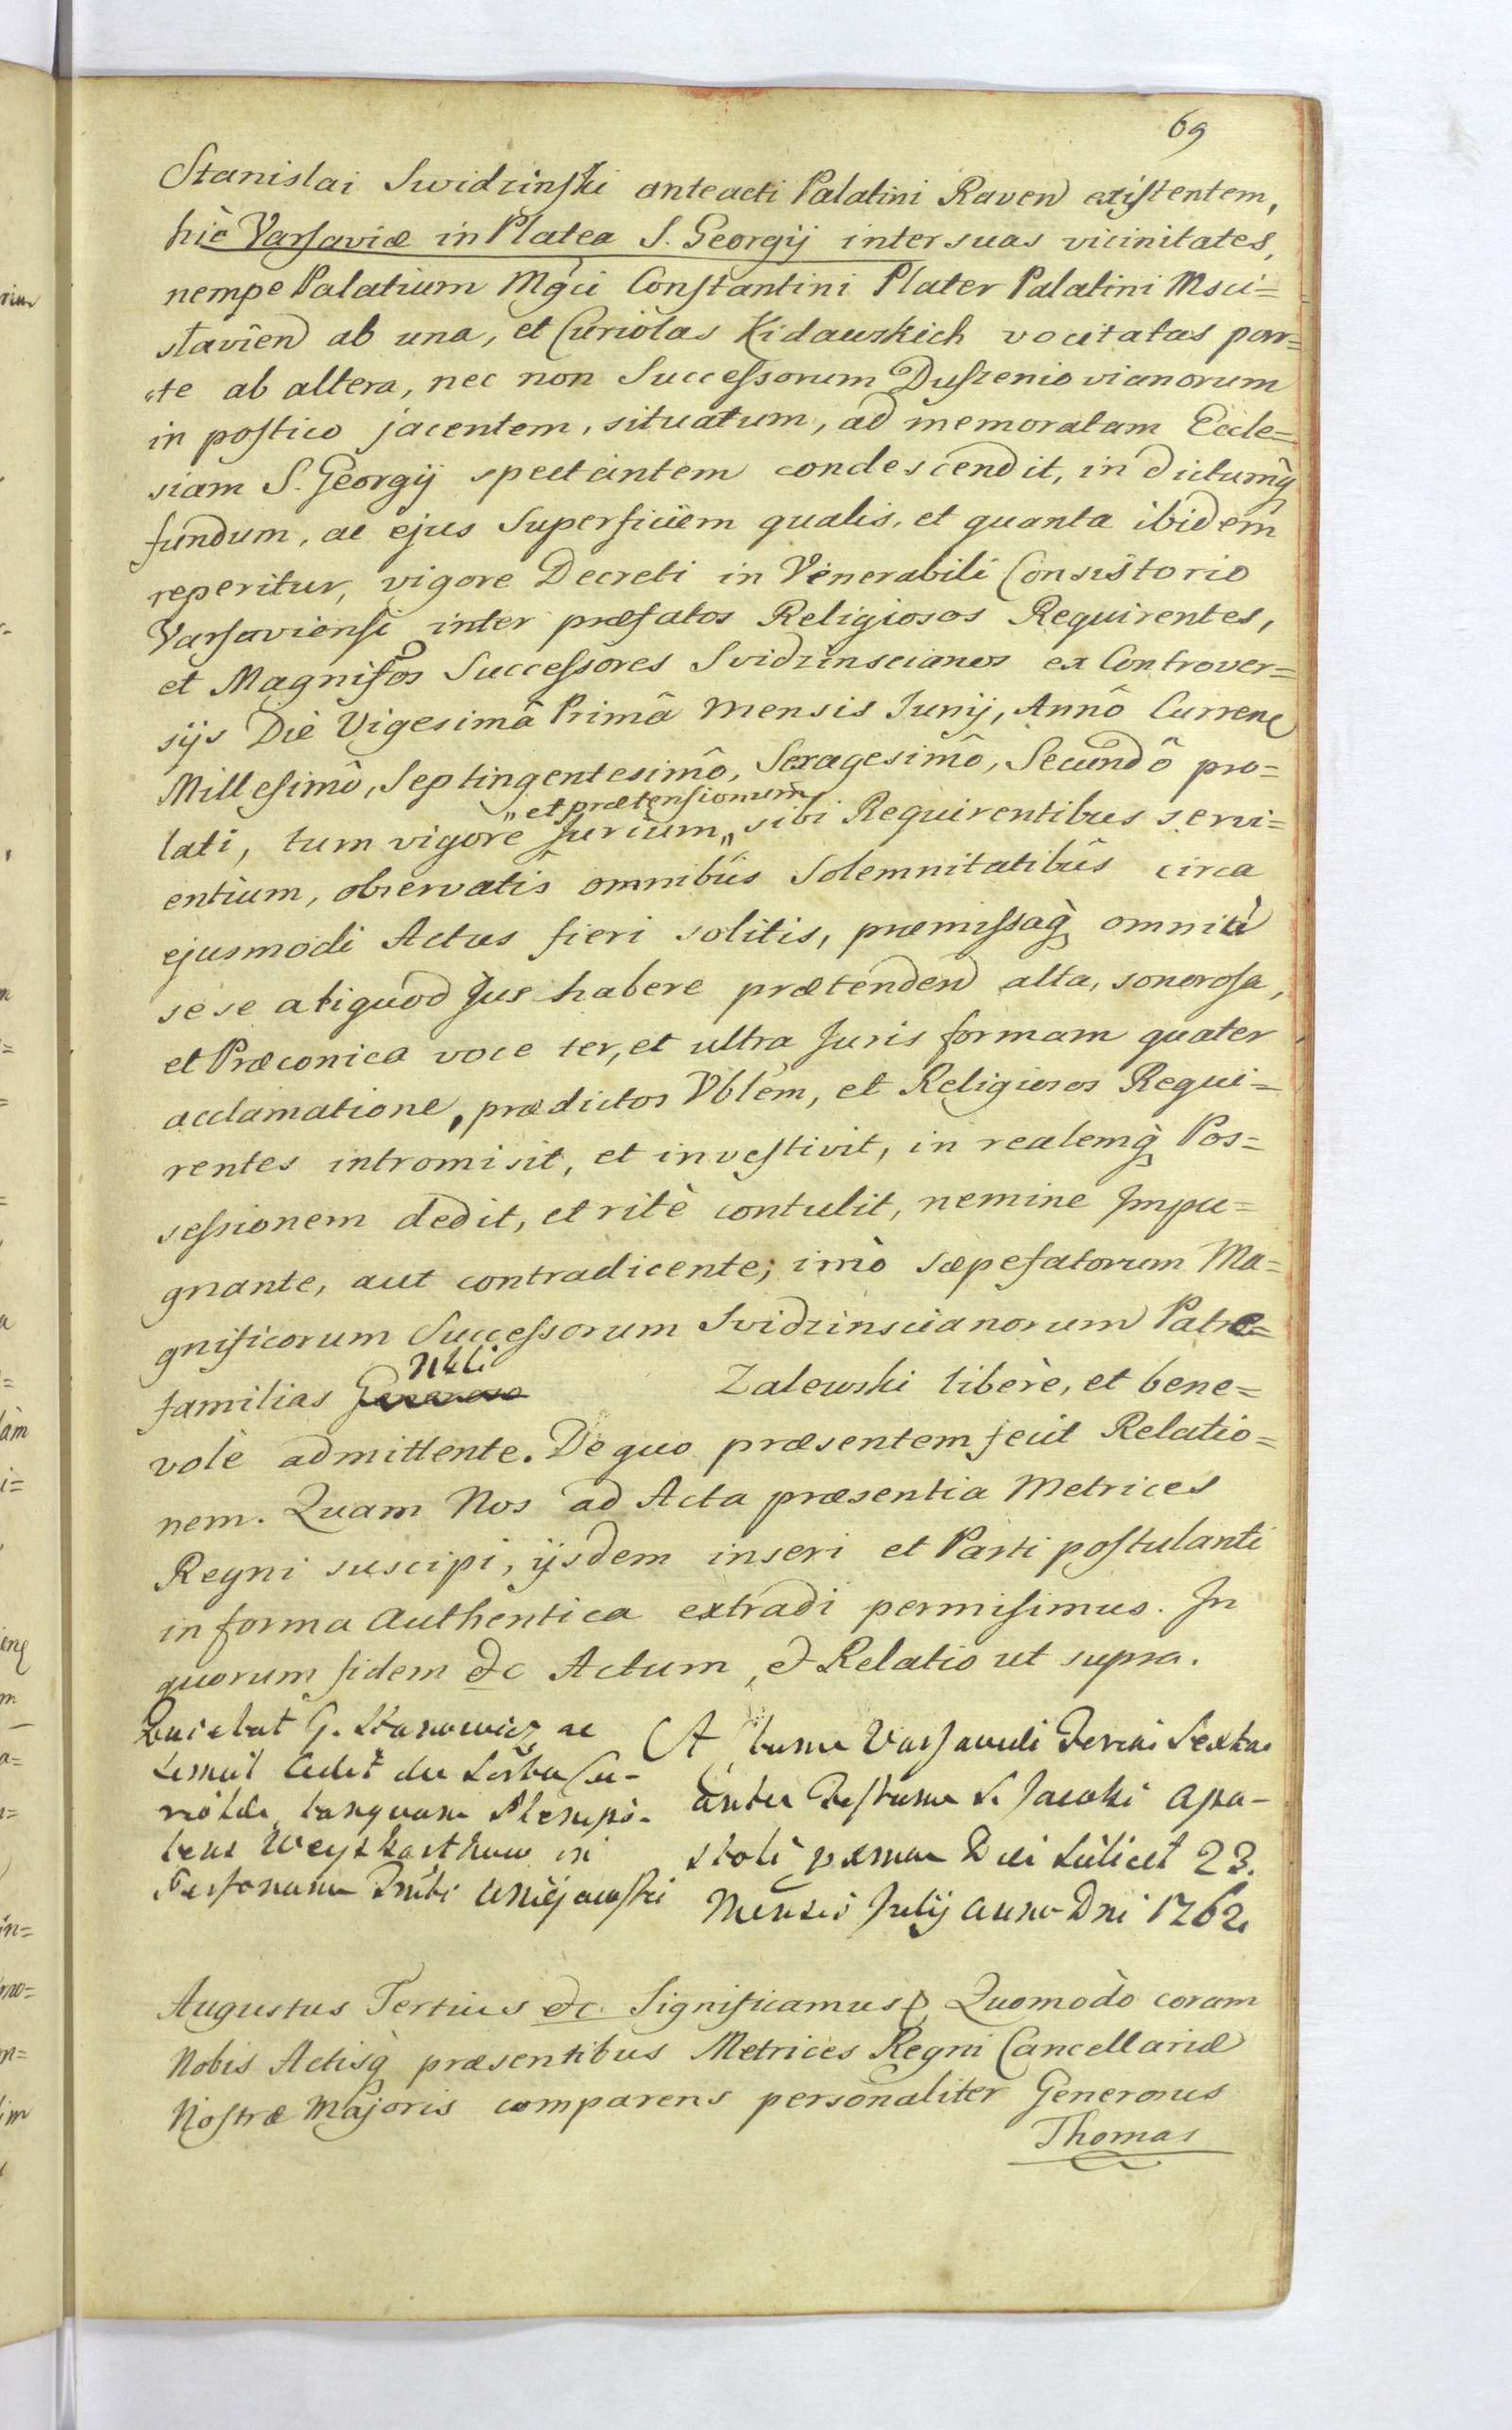 69
Stanislai Swidzinski anteacti Palatini Raven existentem,
hic Varsaviæ in Platea S. Georgij inter suas vicinitates,
nempe Palatium Mgci Constantini Plater Palatini Msci=
slavien ab una, et Curiolas Kidawskich vocitatas par=
te ab altera, nec non Successorum Duszeniovianorum
in postico jacentem, situatum, ad memoratam Eccle=
siam S. Georgij spectantem condescendit, in dictumq
fundum, ac ejus Superficiem qualis, et quanta ibidem
reperitur, vigore Decreti in Venerabili Consistorio
Varsaviensi inter præfatos Religiosos Requirentes,
et Magnifcos Successores Svidzinscianos ex Controver=
sijs Die Vigesimâ Primâ Mensis Junij, Annô Curren
Millesimô, Septingentesimô, Sexagesimô, Secundô pro=
„ et prætensionum
lati, tum vigore Jurium „ sibi Requirentibus servi=
entium, observatis omnibus Solemnitatibus circa
ejusmodi Actus fieri solitis, præmissaq omniũ
sese aliquod Jus habere prætenden alta, sonorosa,
et Præconica voce ter, et ultra Juris formam quater
acclamatione, prædictos Vblem, et Religiosos Requi=
rentes intromisit, et investivit, in realemq Pos=
sessionem dedit, et ritè contulit, nemine Impu=
gnante, aut contradicente; imò sæpefatorum Ma=
gnificorum Successorum Svidzinscianorum Patre=
Nbli
familias Generoso Zalewski liberè, et bene=
volè admittente. De quo præsentem fecit Relatio=
nem. Quam Nos ad Acta præsentia Metrices
Regni suscipi, ijsdem inseri et Parti postulanti
in forma authentica extradi permisimus. In
quorum fidem &c Actum, & Relatio ut supra.
G. ac
Actum Varsaviæ Feria Sexta
ante Festum S. Jacobi Apo-
tanquam
stoli Die scilicet 23.
in
Mensis Julij anno Dni 1762
Personam
Augustus Tertius &c. Significamus Quomodò coram
Nobis Actisq præsentibus Metrices Regni Cancellariæ
Nostræ Majoris comparens personaliter Generosus
Thomas